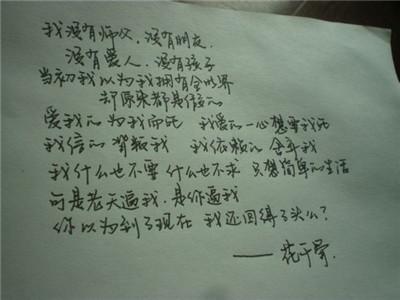 我没有师父，没有朋友，
没有爱人，没有孩子
当初我以为我拥有全世界
却原来都是假的
爱我的 为我而死 我爱的 一心想要我死
我信的 背叛我 我依赖的 舍弃我
我什么也不要 什么也不求 只想简单的生活
可是老天逼我，是你逼我
你以为到了现在 我还回得了头么？
——花千骨.